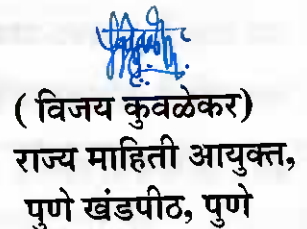 ( विजय कुवळेकर)
राज्य माहिती आयुक्त,
पुणे खंडपीठ, पुणे